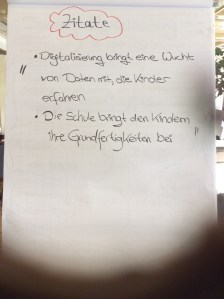 Zitate
• Digitalisierung bringt eine Wucht
von Daten mit, die Kinder
erfahren
• Die Schule bringt den Kindern
ihre Grundfertigkeiten bei "